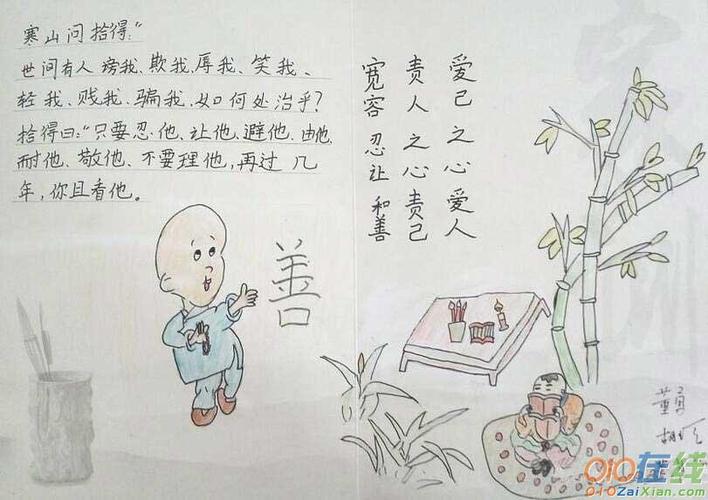 寒山问拾得:"
世间有人 谤我、欺我、辱我、笑我、
轻我、贱我、骗我、如何处治乎?
拾得曰:"只要忍他、让他、避他、由他、
耐他、敬他、不要理他,再过 几
年,你且看他。
善
爱己 之心爱人
责人 之心责己
宽容 忍让 和善
家训
董勇
010在线
010ZaiXian.com